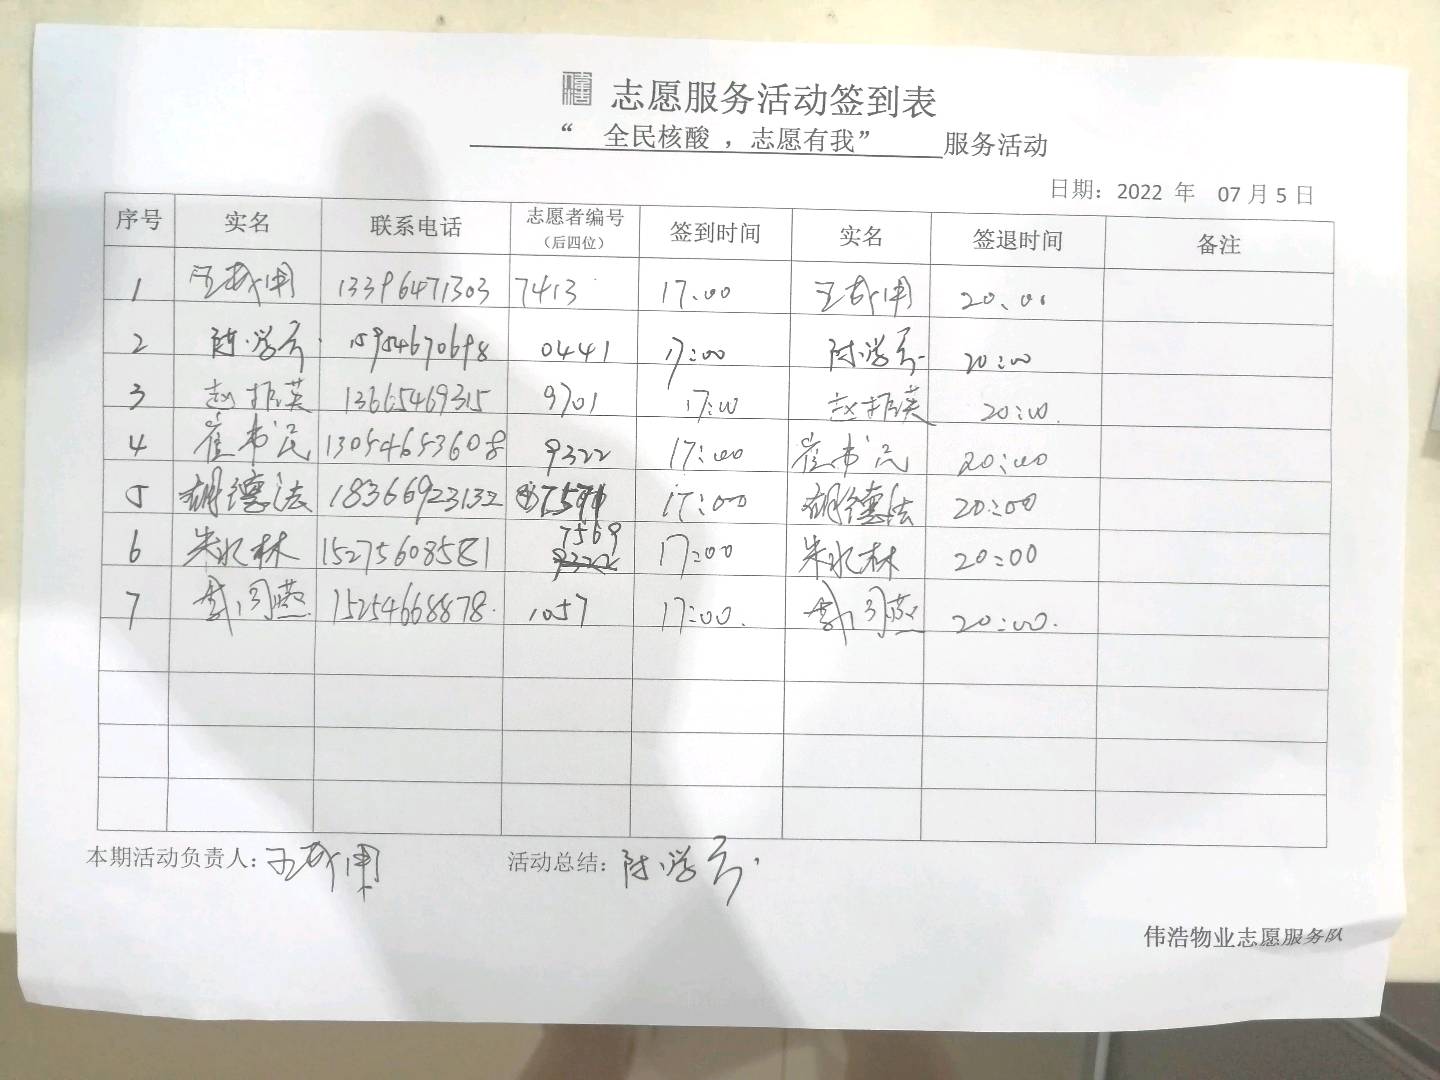 志愿服务活动签到表
“ 全民核酸 ，志愿有我” 服务活动
日期：2022 年 07 月 5 日
序号 实名 联系电话 志愿者编号（后四位） 签到时间 实名 签退时间 备注
1 13396471303 7413 17:00 20:00
2 15954670698 0441 17:00 20:00
3 赵振英 13665469315 9701 17:00 赵振英 20:00
4 崔书民 13054653608 9322 17:00 崔书民 20:00
5 胡德法 18366923132 17:00 胡德法 20:00
6 朱永林 15275608581 7569 17:00 朱永林 20:00
7 15254668878 1057 17:00 20:00
本期活动负责人： 活动总结：
伟浩物业志愿服务队